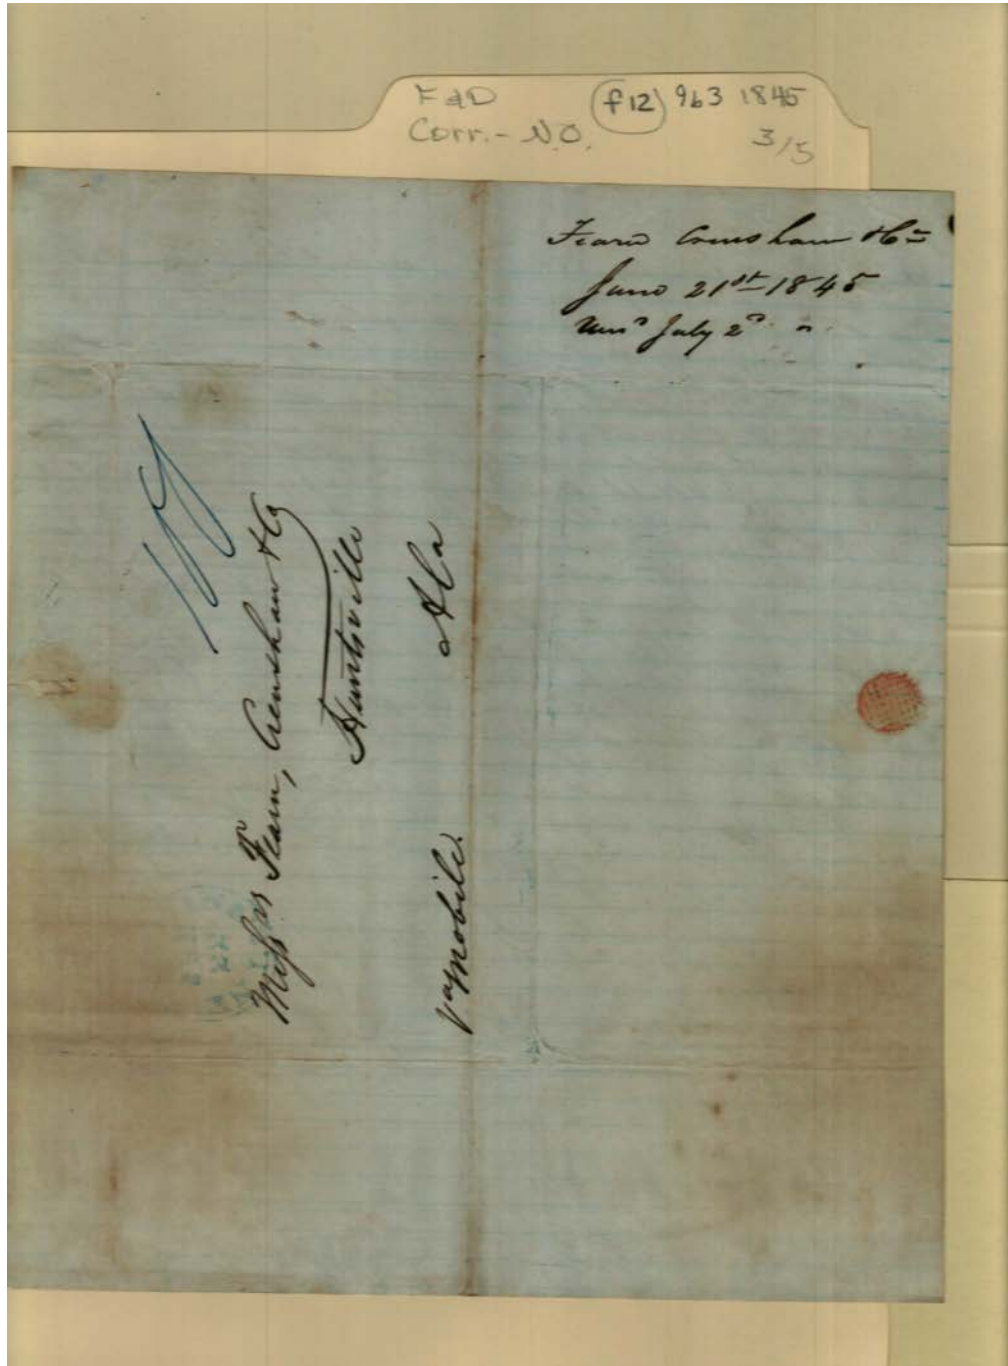 F&D (f12) 963 1845
Corr.- N.O. 3/5
Fearn Crenshaw & Co
June 21st 1845
July 2d
Messrs Fearn, Crenshaw & Co
Huntsville
Ala
via Mobile.